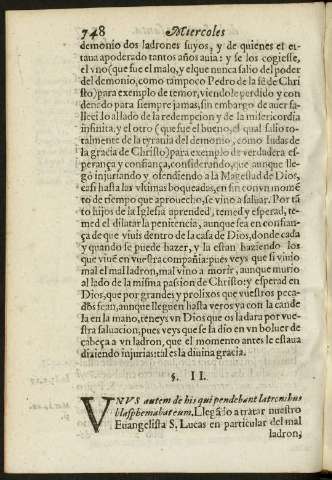 748 Miercoles
demonio dos ladrones suyos, y de quienes el es-
taua apoderado tantos años auia: y se los cogiesse,
el vno (que fue el malo, y el que nunca salio del poder
del demonio, como tampoco Pedro de la fè de Chri
sto) para exemplo de temor, viendole perdido y con
denado para siempre jamas, sin embargo de auer fa-
lleci lo al lado de la redempcion y de la misericordia
infinita, y el otro (que fue el bueno, el qual salio to-
talmente de la tyrania del demonio, como Iudas de
la gracia de Christo) para exemplo de verdadera es-
perança y confiança, considerando, que aunque lle-
gò injuriando y ofendiendo a la Magestad de Dios,
casi hasta las vltimas boqueadas, en fin con vn momẽ
to de tiempo que aprouecho, se vino a saluar. Por tã
to hijos de la Iglesia aprended, temed y esperad, te-
med el dilatar la penitencia, aunque sea en confian-
ça de que viuis dentro de la casa de Dios, donde cada
y quando se puede hazer, y la estan haziendo los
que viuẽ en vuestra compañia: pues veys que si viuio
mal el mal ladron, mal vino a morir, aunque murio
al lado de la misma passion de Christo: y esperad en
Dios, que por grandes y prolixos que vuestros peca-
dos sean, aunque lleguen hasta veros ya con la cande
la en la mano, teneys vn Dios que os la dara por vue-
stra saluacion, pues veys que se la dio en vn boluer de
cabeça a vn ladron, que el momento antes le estaua
diziendo injurias: tal es la diuina gracia.
§. II.
VNVS autem de his qui pendebant latronibus
blasphemabat eum. Llegã lo a tratar nuestro
Euangelista S. Lucas en particular del mal
ladron,